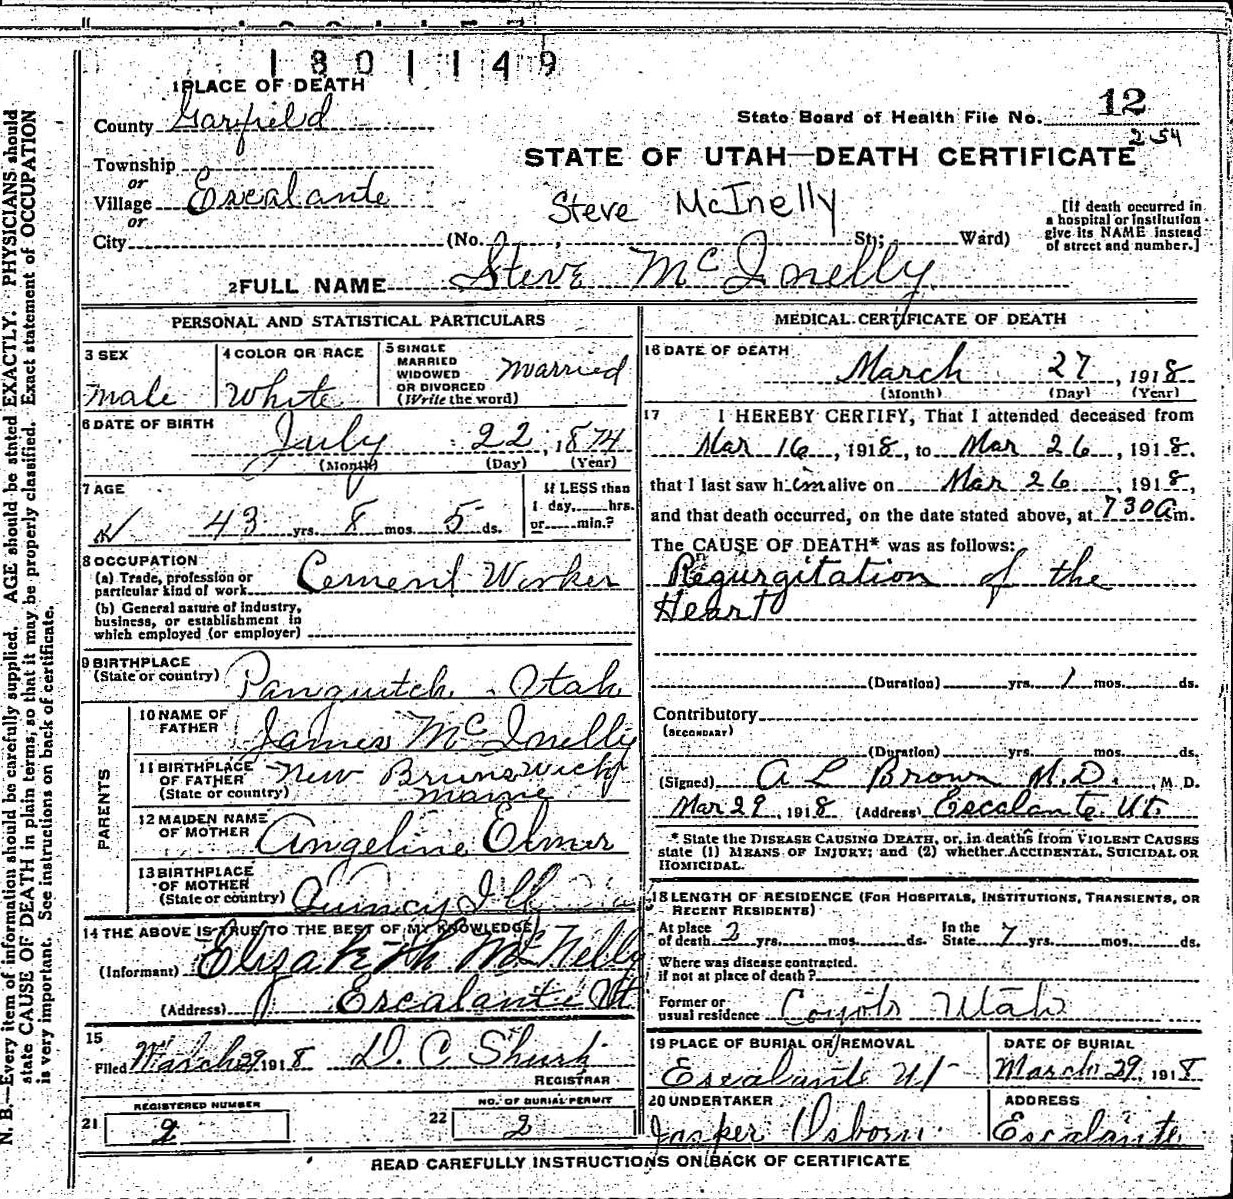 1801149
1 PLACE OF DEATH
County Garfield
State Board of Health File No. 12
254
Township
or
Village Escalante
or
City (No. , St; Ward)
STATE OF UTAH—DEATH CERTIFICATE
Steve McInelly
[If death occurred in
a hospital or institution
give its NAME instead
of street and number.]
2 FULL NAME Steve McInelly
PERSONAL AND STATISTICAL PARTICULARS
3 SEX
male
4 COLOR OR RACE
White
5 SINGLE
MARRIED
WIDOWED
OR DIVORCED
(Write the word)
married
6 DATE OF BIRTH
July 22, 1874
(Month) (Day) (Year)
7 AGE
43 yrs. 8 mos. 5 ds.
If LESS than
1 day, hrs.
or min.?
8 OCCUPATION
(a) Trade, profession or
particular kind of work Cement Worker
(b) General nature of industry,
business, or establishment in
which employed (or employer)
9 BIRTHPLACE
(State or country) Panguitch - Utah
PARENTS
10 NAME OF
FATHER James McInelly
11 BIRTHPLACE
OF FATHER
(State or country) New Brunswick
Maine
12 MAIDEN NAME
OF MOTHER Angeline Elmer
13 BIRTHPLACE
OF MOTHER
(State or country) Quincy Ill
14 THE ABOVE IS TRUE TO THE BEST OF MY KNOWLEDGE
(Informant) Elizabeth McNelly
(Address) Escalante Ut
15
Filed March 29 1918 D. C. Shurtz
REGISTRAR
21 REGISTERED NUMBER
2
22 NO. OF BURIAL PERMIT
2
MEDICAL CERTIFICATE OF DEATH
16 DATE OF DEATH
March 27, 1918
(Month) (Day) (Year)
17 I HEREBY CERTIFY, That I attended deceased from
Mar 16, 1918, to Mar 26, 1918.
that I last saw him alive on Mar 26, 1918,
and that death occurred, on the date stated above, at 730 a m.
The CAUSE OF DEATH* was as follows:
Regurgitation of the
Heart
(Duration) yrs. 1 mos. ds.
Contributory
(SECONDARY)
(Duration) yrs. mos. ds.
(Signed) A L Brown M.D. M. D.
Mar 29, 1918 (Address) Escalante Ut.
* State the DISEASE CAUSING DEATH, or, in deaths from VIOLENT CAUSES
state (1) MEANS OF INJURY; and (2) whether ACCIDENTAL, SUICIDAL OR
HOMICIDAL.
18 LENGTH OF RESIDENCE (FOR HOSPITALS, INSTITUTIONS, TRANSIENTS, OR
RECENT RESIDENTS)
At place
of death 2 yrs. mos. ds. In the
State 7 yrs. mos. ds.
Where was disease contracted.
if not at place of death?
Former or
usual residence Coyote Utah
19 PLACE OF BURIAL OR REMOVAL
Escalante Ut
DATE OF BURIAL
March 29 1918
20 UNDERTAKER
Jasper Osborn
ADDRESS
Escalante
READ CAREFULLY INSTRUCTIONS ON BACK OF CERTIFICATE
N. B.—Every item of information should be carefully supplied. AGE should be stated EXACTLY. PHYSICIANS should
state CAUSE OF DEATH in plain terms, so that it may be properly classified. Exact statement of OCCUPATION
is very important. See instructions on back of certificate.